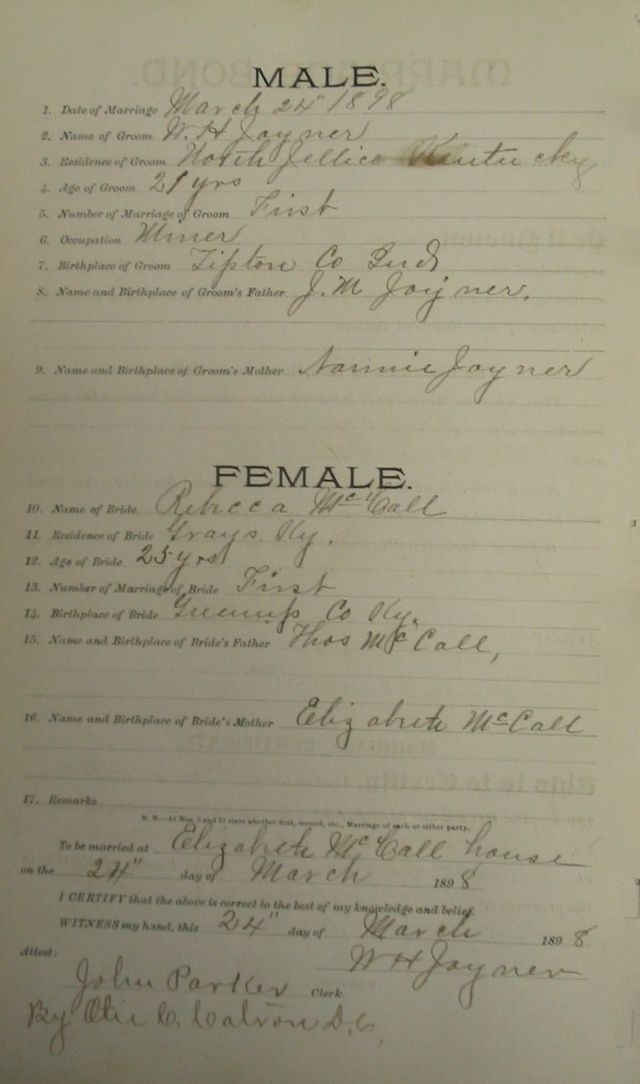 MALE.
1. Date of Marriage March 24" 1898
2. Name of Groom W. H Joyner
3. Residence of Groom North Jellico Kentucky
4. Age of Groom 21 yrs
5. Number of Marriage of Groom First
6. Occupation Miner
7. Birthplace of Groom Tipton Co Ind
8. Name and Birthplace of Groom's Father J. M Joyner.
9. Name and Birthplace of Groom's Mother Nannie Joyner
FEMALE.
10. Name of Bride Rebecca McCall
11. Residence of Bride Grays Ky.
12. Age of Bride 25 yrs
13. Number of Marriage of Bride First
14. Birthplace of Bride Greenup Co Ky.
15. Name and Birthplace of Bride's Father Thos McCall,
16. Name and Birthplace of Bride's Mother Elizabeth McCall
17. Remarks
N. B.—At Nos. 5 and 13 state whether first, second, etc., Marriage of each or either party.
To be married at Elizabeth McCall house
on the 24" day of March 1898
I CERTIFY that the above is correct to the best of my knowledge and belief.
WITNESS my hand, this 24" day of March 1898
W H Joyner
Attest:
John Parker Clerk
By Otie C. Catron D.C.